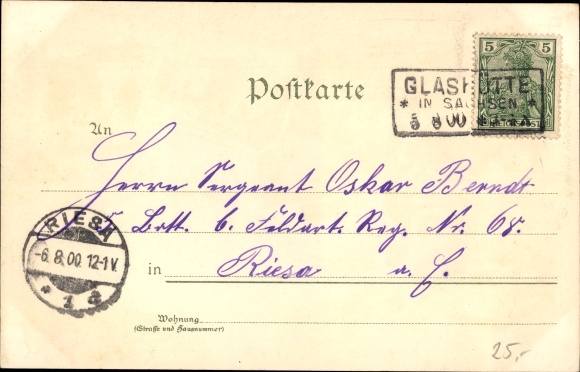 5
Postkarte
GLASHÜTTE
* IN SACHSEN *
5 8 00
An
Herrn Sergeant Oskar Berndt
5 Batt. 6. Feldart. Reg. Nr. 68.
RIESA
-6.8.00. 12-1V.
* 1 a
in Riesa a. E.
Wohnung
(Straße und Hausnummer)
25,-